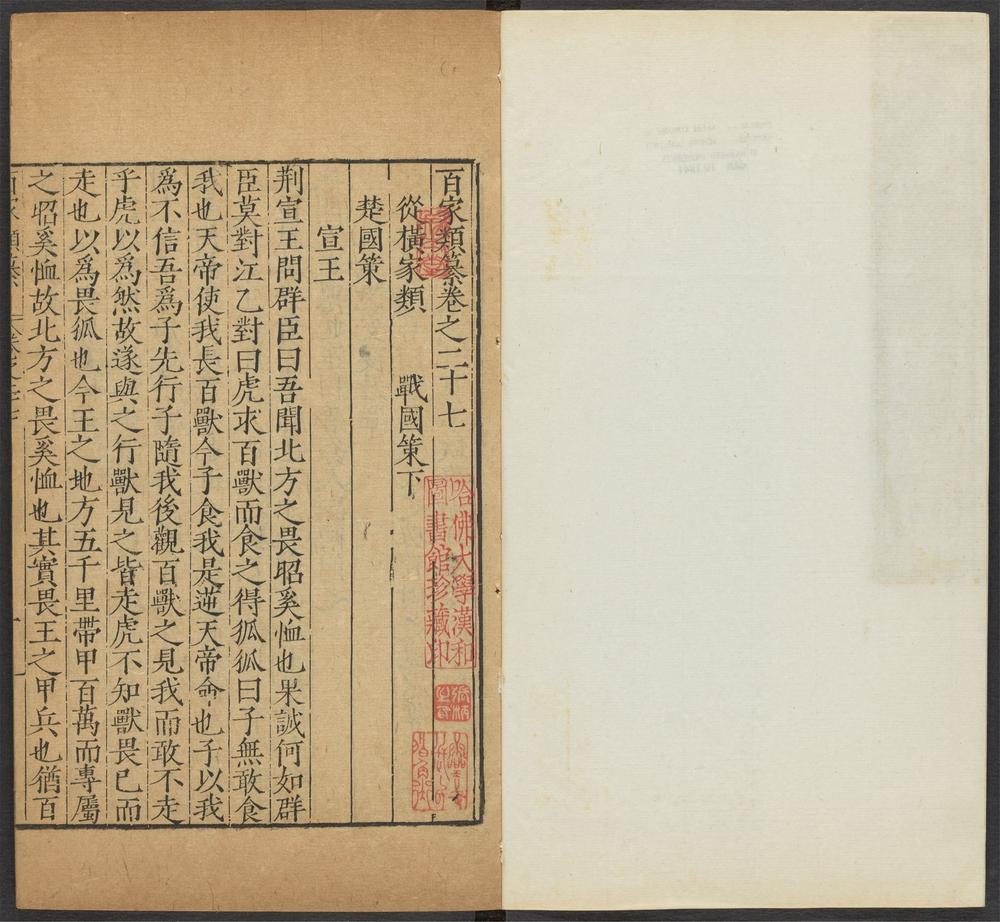 百家類纂卷之二十七
從橫家類 戰國策下
楚國策
宣王
荆宣王問群臣曰吾聞北方之畏昭奚恤也果誠何如群
臣莫對江乙對曰虎求百獸而食之得狐狐曰子無敢食
我也天帝使我長百獸今子食我是逆天帝命也子以我
爲不信吾爲子先行子隨我後觀百獸之見我而敢不走
乎虎以爲然故遂與之行獸見之皆走虎不知獸畏已而
走也以爲畏狐也今王之地方五千里帶甲百萬而專屬
之昭奚恤故北方之畏奚恤也其實畏王之甲兵也猶百
哈佛大學漢和
圖書館珍藏印